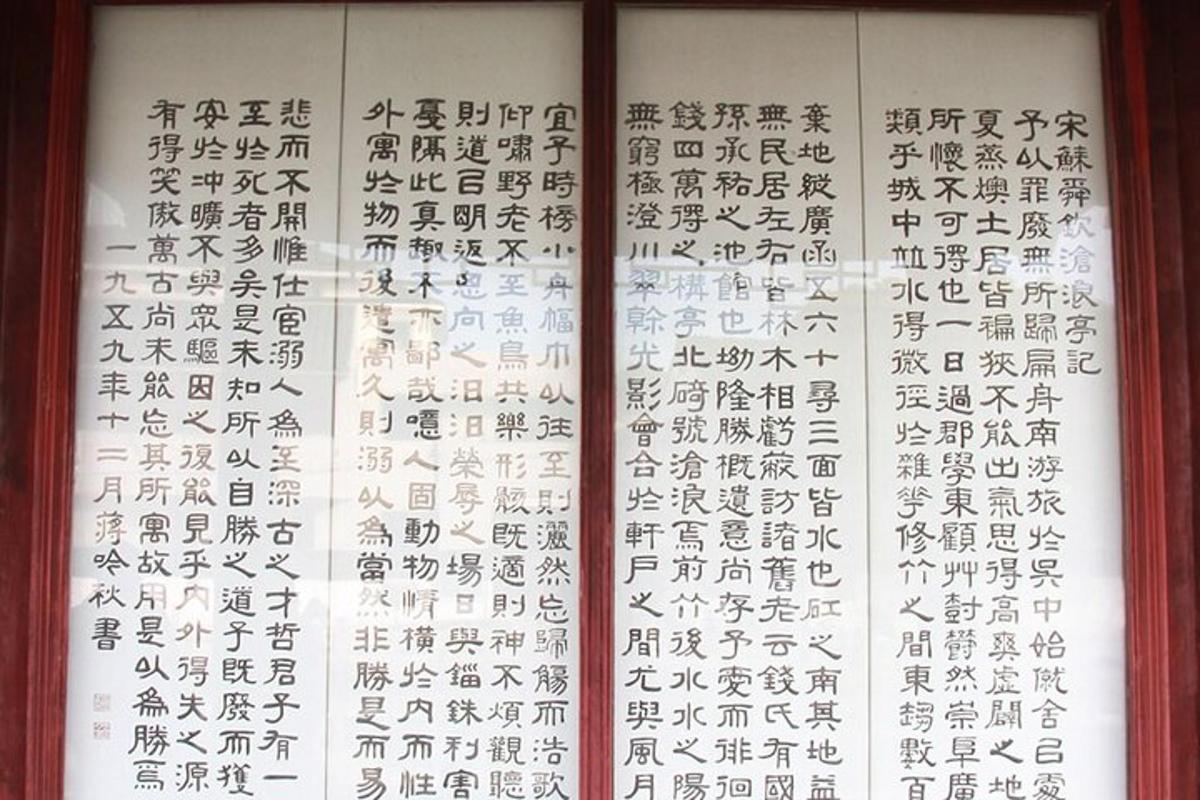 宋蘇舜欽滄浪亭記
予以罪廢無所歸扁舟南游旅於吳中始僦舍㠯處
夏蒸燠土居皆褊狹不能出氣思得高爽虛闢之地
所懷不可得也一日過郡學東顧艸樹鬱然崇阜廣
類乎城中並水得微徑於雜花修竹之間東趨數百
棄地縱廣函五六十尋三面皆水也杠之南其地益
無民居左右皆林木相虧蔽訪諸舊老云錢氏有國
孫承祐之池館也坳隆勝概遺意尚存予愛而徘徊
錢四萬得之構亭北碕號滄浪焉前竹後水水之陽
無窮極澄川翠幹光影會合於軒戶之間尤與風月
宜予時榜小舟幅巾以往至則灑然忘歸觴而浩歌
仰嘯野老不至魚鳥共樂形骸既適則神不煩觀聽
則道㠯明返思向之汩汩榮辱之場日與錙銖利害
戛隔此真趣不亦鄙哉噫人固動物情橫於內而性
外寓於物而後遣寓久則溺以為當然非勝是而易
悲而不開惟仕宦溺人為至深古之才哲君子有一
至於死者多矣是未知所以自勝之道予既廢而獲
安於沖曠不與眾驅因之復能見乎內外得失之源
有得笑傲萬古尚未能忘其所寓故用是以為勝焉
一九五九年十二月蔣吟秋書